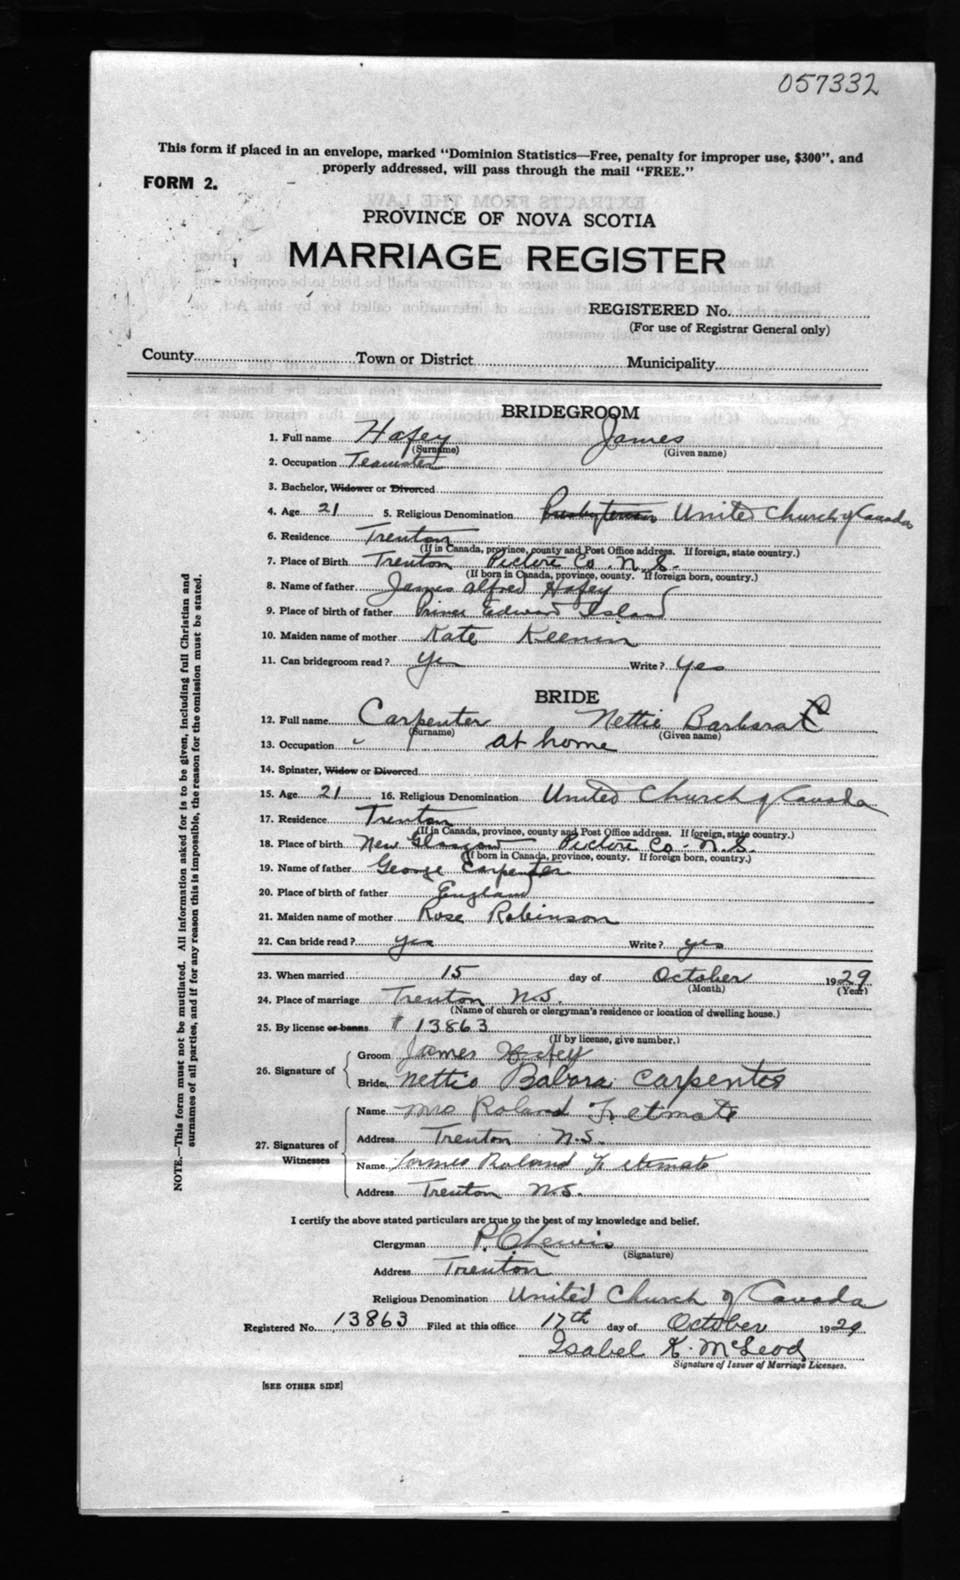 057332
This form if placed in an envelope, marked "Dominion Statistics—Free, penalty for improper use, $300", and
properly addressed, will pass through the mail "FREE."
FORM 2.
PROVINCE OF NOVA SCOTIA
MARRIAGE REGISTER
REGISTERED No.
(For use of Registrar General only)
County Town or District Municipality
BRIDEGROOM
1. Full name Hafey James
(Surname) (Given name)
2. Occupation Teamster
3. Bachelor, Widower or Divorced
4. Age 21 5. Religious Denomination Presbyterian United Church of Canada
6. Residence Trenton
(If in Canada, province, county and Post Office address. If foreign, state country.)
7. Place of Birth Trenton Pictou Co. N.S.
(If born in Canada, province, county. If foreign born, country.)
8. Name of father James Alfred Hafey
9. Place of birth of father Prince Edward Island
10. Maiden name of mother Kate
11. Can bridegroom read? Yes Write? Yes
BRIDE
12. Full name Carpenter Nettie Barbara C
(Surname) (Given name)
13. Occupation at home
14. Spinster, Widow or Divorced
15. Age 21 16. Religious Denomination United Church of Canada
17. Residence Trenton
(If in Canada, province, county and Post Office address. If foreign, state country.)
18. Place of birth New Glasgow Pictou Co. N.S.
(If born in Canada, province, county. If foreign born, country.)
19. Name of father George Carpenter
20. Place of birth of father England
21. Maiden name of mother Rose Robinson
22. Can bride read? yes Write? yes
23. When married 15 day of October 1929
(Month) (Year)
24. Place of marriage Trenton N.S.
(Name of church or clergyman's residence or location of dwelling house.)
25. By license or banns # 13863
(If by license, give number.)
26. Signature of
Groom James Hafey
Bride, Nettie Babora Carpenter
27. Signatures of Witnesses
Name Mrs Roland
Address Trenton N.S.
Name James Roland
Address Trenton N.S.
I certify the above stated particulars are true to the best of my knowledge and belief.
Clergyman P.C. Lewis
(Signature)
Address Trenton
Religious Denomination United Church of Canada
Registered No. 13863 Filed at this office 17th day of October 1929
Isabel K. McLeod
Signature of Issuer of Marriage Licenses.
[SEE OTHER SIDE]
NOTE.—This form must not be mutilated. All information asked for is to be given, including full Christian and
surnames of all parties, and if for any reason this is impossible, the reason for the omission must be stated.